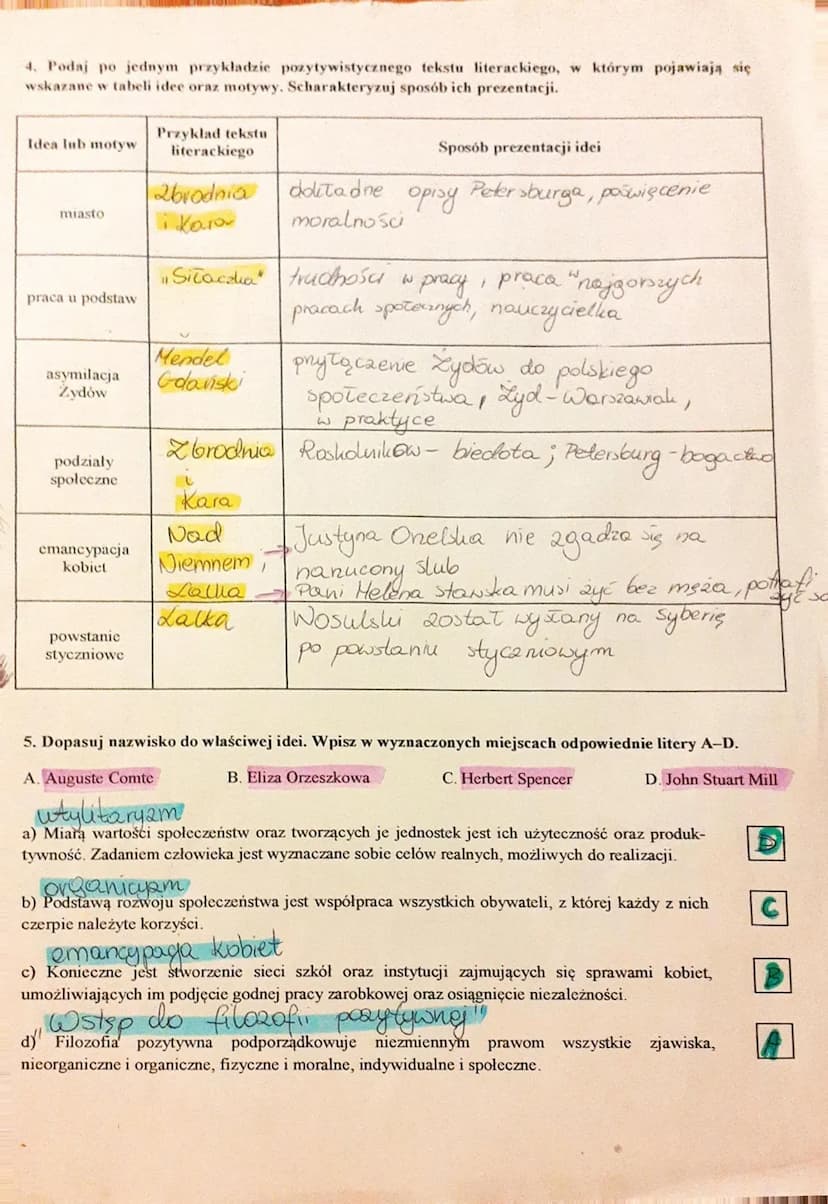 4. Podaj po jednym przykładzie pozytywistycznego tekstu literackiego, w którym pojawiają się
wskazane w tabeli idee oraz motywy. Scharakteryzuj sposób ich prezentacji.
Idea lub motyw
Przykład tekstu
literackiego
Sposób prezentacji idei
miasto
Zbrodnia
i Kara
dokładne opisy Petersburga, poświęcenie
moralności
praca u podstaw
"Siłaczka"
trudności w pracy, praca w najgorszych
pracach społecznych, nauczycielka
asymilacja
Żydów
Mendel
Gdański
przyłączenie Żydów do polskiego
społeczeństwa, Żyd-Warszawiak,
w praktyce
podziały
społeczne
Zbrodnia
i
Kara
Raskolnikow - biedota; Petersburg - bogactwo
emancypacja
kobiet
Nad
Niemnem,
Lalka
Justyna Orzelska nie zgadza się na
narzucony ślub
Pani Helena stawska musi żyć bez męża, potrafi
żyć
powstanie
styczniowe
Lalka
Wokulski został wysłany na Syberię
po powstaniu styczniowym
5. Dopasuj nazwisko do właściwej idei. Wpisz w wyznaczonych miejscach odpowiednie litery A–D.
A. Auguste Comte B. Eliza Orzeszkowa C. Herbert Spencer D. John Stuart Mill
utylitaryzm
a) Miarą wartości społeczeństw oraz tworzących je jednostek jest ich użyteczność oraz produk-
tywność. Zadaniem człowieka jest wyznaczanie sobie celów realnych, możliwych do realizacji.
D
organicyzm
b) Podstawą rozwoju społeczeństwa jest współpraca wszystkich obywateli, z której każdy z nich
czerpie należyte korzyści.
C
emancypacja kobiet
c) Konieczne jest stworzenie sieci szkół oraz instytucji zajmujących się sprawami kobiet,
umożliwiających im podjęcie godnej pracy zarobkowej oraz osiągnięcie niezależności.
B
"Wstęp do filozofii pozytywnej"
d) Filozofia pozytywna podporządkowuje niezmiennym prawom wszystkie zjawiska,
nieorganiczne i organiczne, fizyczne i moralne, indywidualne i społeczne.
A